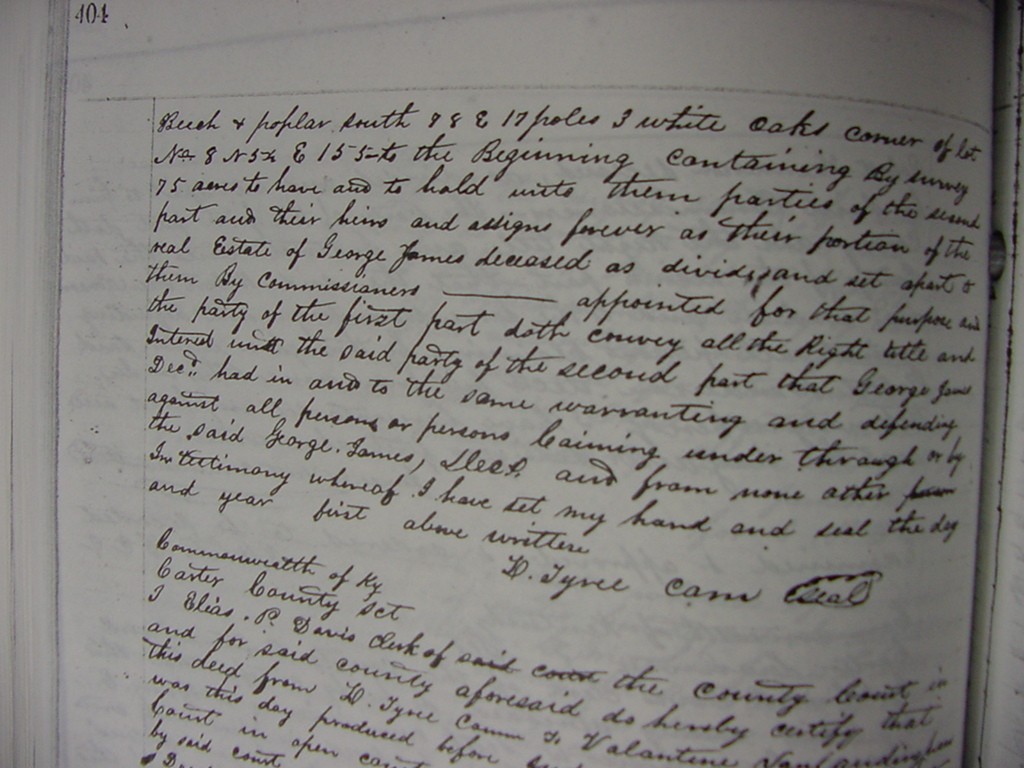 404
Beech & poplar south 78 E 17 poles 3 white oaks corner of lot
No 8 N 5½ E 155 to the Beginning containing By survey
75 acres to have and to hold unto them parties of the second
part and their heirs and assigns forever as their portion of the
real Estate of George James deceased as divided and set apart to
them By Commissioners ——— appointed for that purpose and
the party of the first part doth convey all the Right title and
Interest the said party of the second part that George James
Decd. had in and to the same warranting and defending
against all persons or persons claiming under through or by
the said George James, Decd. and from none other
In testimony whereof I have set my hand and seal the day
and year first above written
D. Tyree Com Seal
Commonwealth of Ky
Carter County Sct
I Elias P. Davis clerk of the county court in
and for said county aforesaid do hereby certify that
this deed from D. Tyree Comm To Valantine Vanlandingham
was this day produced before
Court in open court
by said court